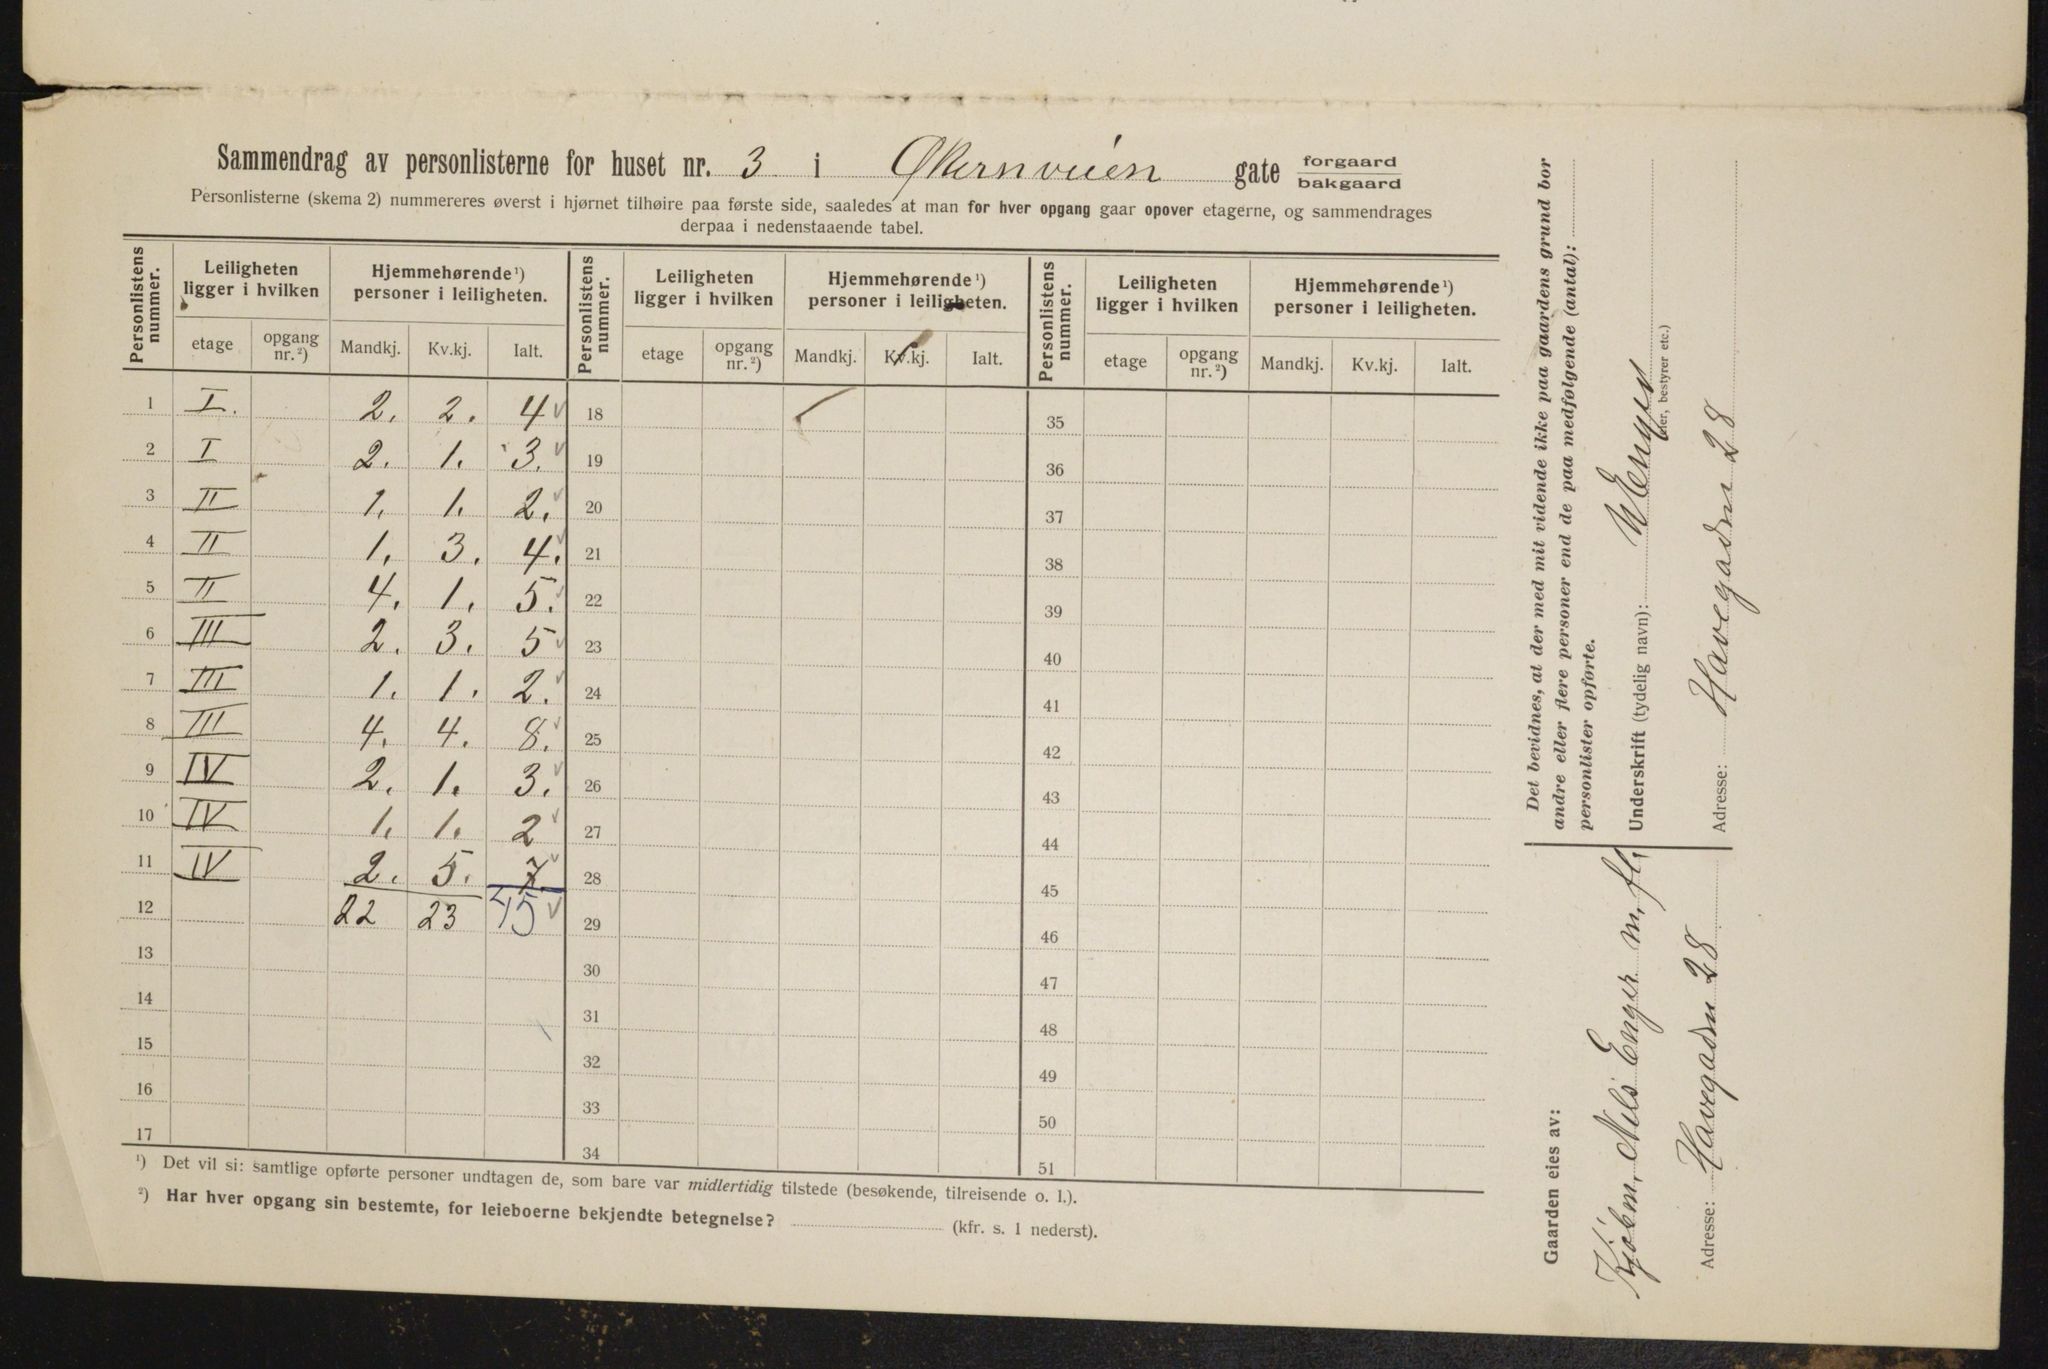 Sammendrag av personlisterne for huset nr. 3 i Økernveien gate forgaard bakgaard
Personlisterne (skema 2) nummereres øverst i hjørnet tilhøire paa første side, saaledes at man for hver opgang gaar opover etagerne, og sammendrages
derpaa i nedenstaaende tabel.
Personlistens nummer. Leiligheten ligger i hvilken Hjemmehørende ¹) personer i leiligheten. Personlistens nummer. Leiligheten ligger i hvilken Hjemmehørende ¹) personer i leiligheten. Personlistens nummer. Leiligheten ligger i hvilken Hjemmehørende ¹) personer i leiligheten.
etage opgang nr.²) Mandkj. Kv.kj. Ialt. etage opgang nr.²) Mandkj. Kv.kj. Ialt. etage opgang nr.²) Mandkj. Kv.kj. Ialt.
1 I. 2. 2. 4 ✓ 18 35
2 I 2. 1. 3. ✓ 19 36
3 II 1. 1. 2. ✓ 20 37
4 II 1. 3. 4. ✓ 21 38
5 II 4. 1. 5. ✓ 22 39
6 III 2. 3. 5 ✓ 23 40
7 III 1. 1. 2. ✓ 24 41
8 III 4. 4. 8. ✓ 25 42
9 IV 2. 1. 3. ✓ 26 43
10 IV 1. 1. 2 ✓ 27 44
11 IV 2. 5. 7 ✓ 28 45
12 22 23 45 ✓ 29 46
13 30 47
14 31 48
15 32 49
16 33 50
17 34 51
¹) Det vil si: samtlige opførte personer undtagen de, som bare var midlertidig tilstede (besøkende, tilreisende o. l.).
²) Har hver opgang sin bestemte, for leieboerne bekjendte betegnelse? (kfr. s. 1 nederst).
Det bevidnes, at der med mit vidende ikke paa gaardens grund bor
andre eller flere personer end de paa medfølgende (antal):
personlister opførte.
Underskrift (tydelig navn): N Enger
(eier, bestyrer etc.)
Adresse: Havegaden 28
Gaarden eies av:
Kjøbm. Nils Enger m. fl.
Adresse: Havegaden 28